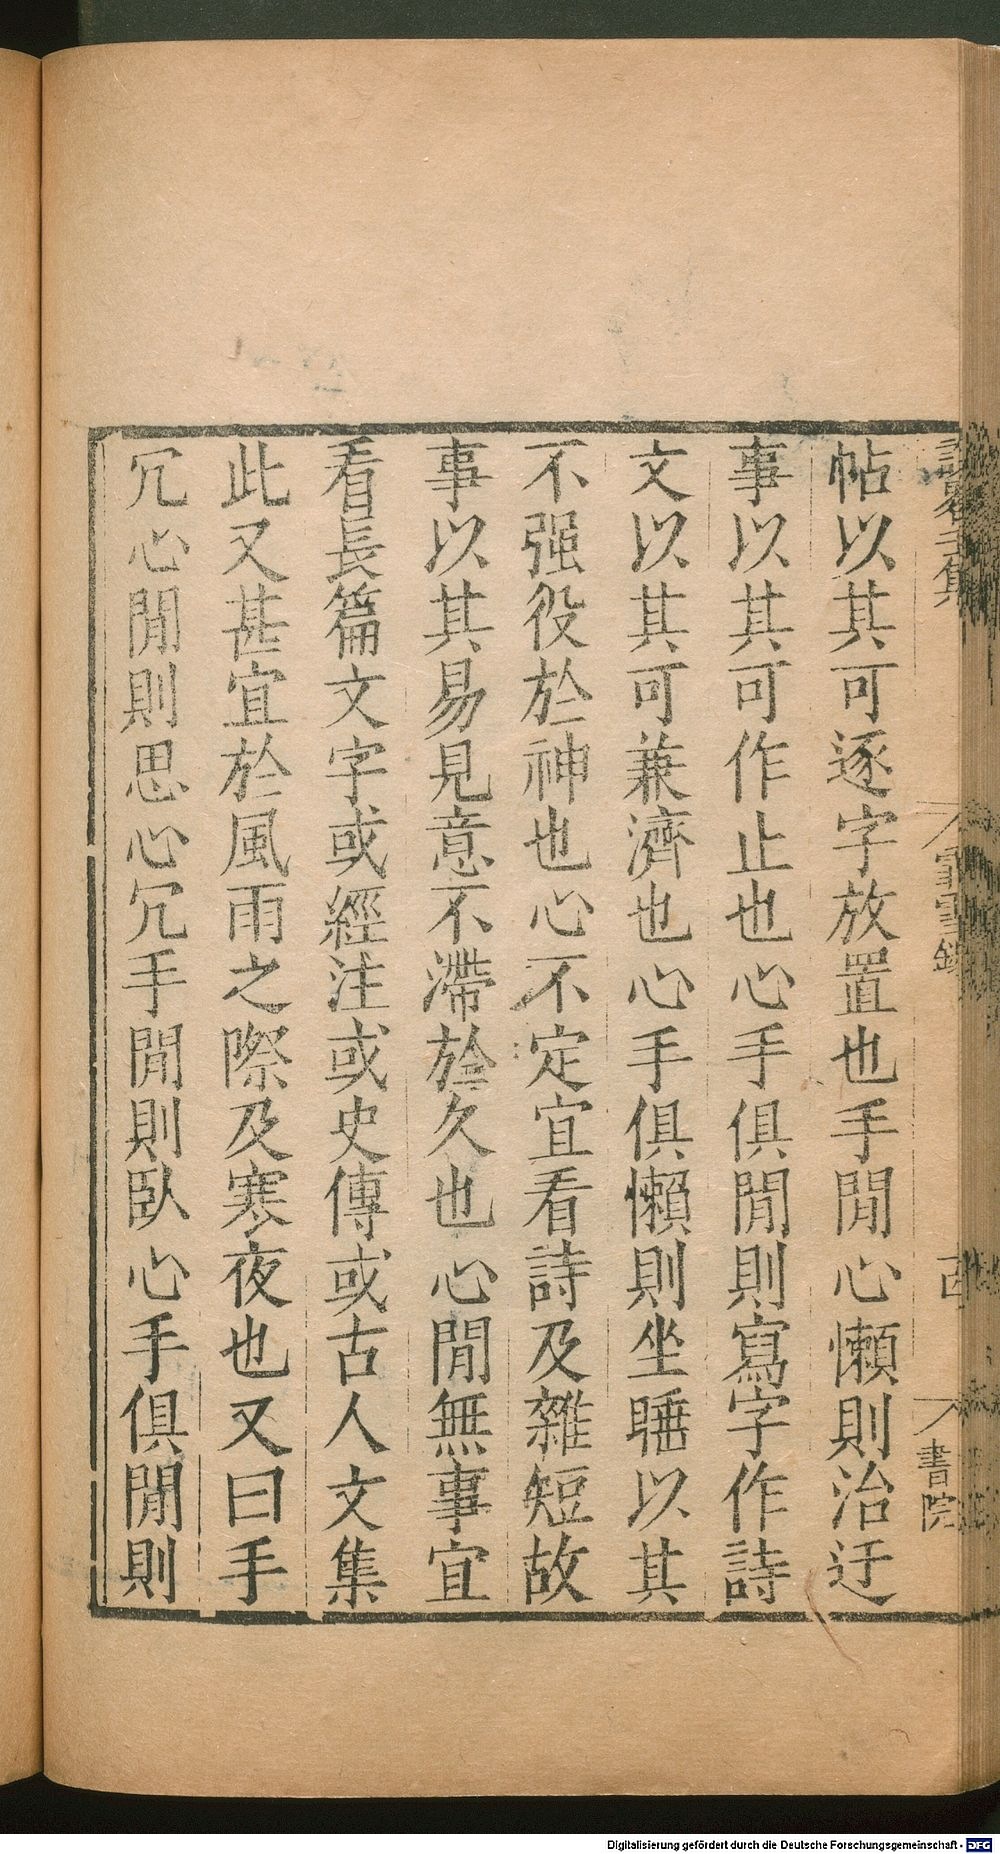 帖以其可逐字放置也手閒心懶則治迂
事以其可作止也心手俱閒則寫字作詩
文以其可兼濟也心手俱懶則坐睡以其
不强役於神也心不定宜看詩及雜短故
事以其易見意不滯於久也心閒無事宜
看長篇文字或經注或史傳或古人文集
此又甚宜於風雨之際及寒夜也又曰手
冗心閒則思心冗手閒則臥心手俱閒則
書院
Digitalisierung gefördert durch die Deutsche Forschungsgemeinschaft - DFG